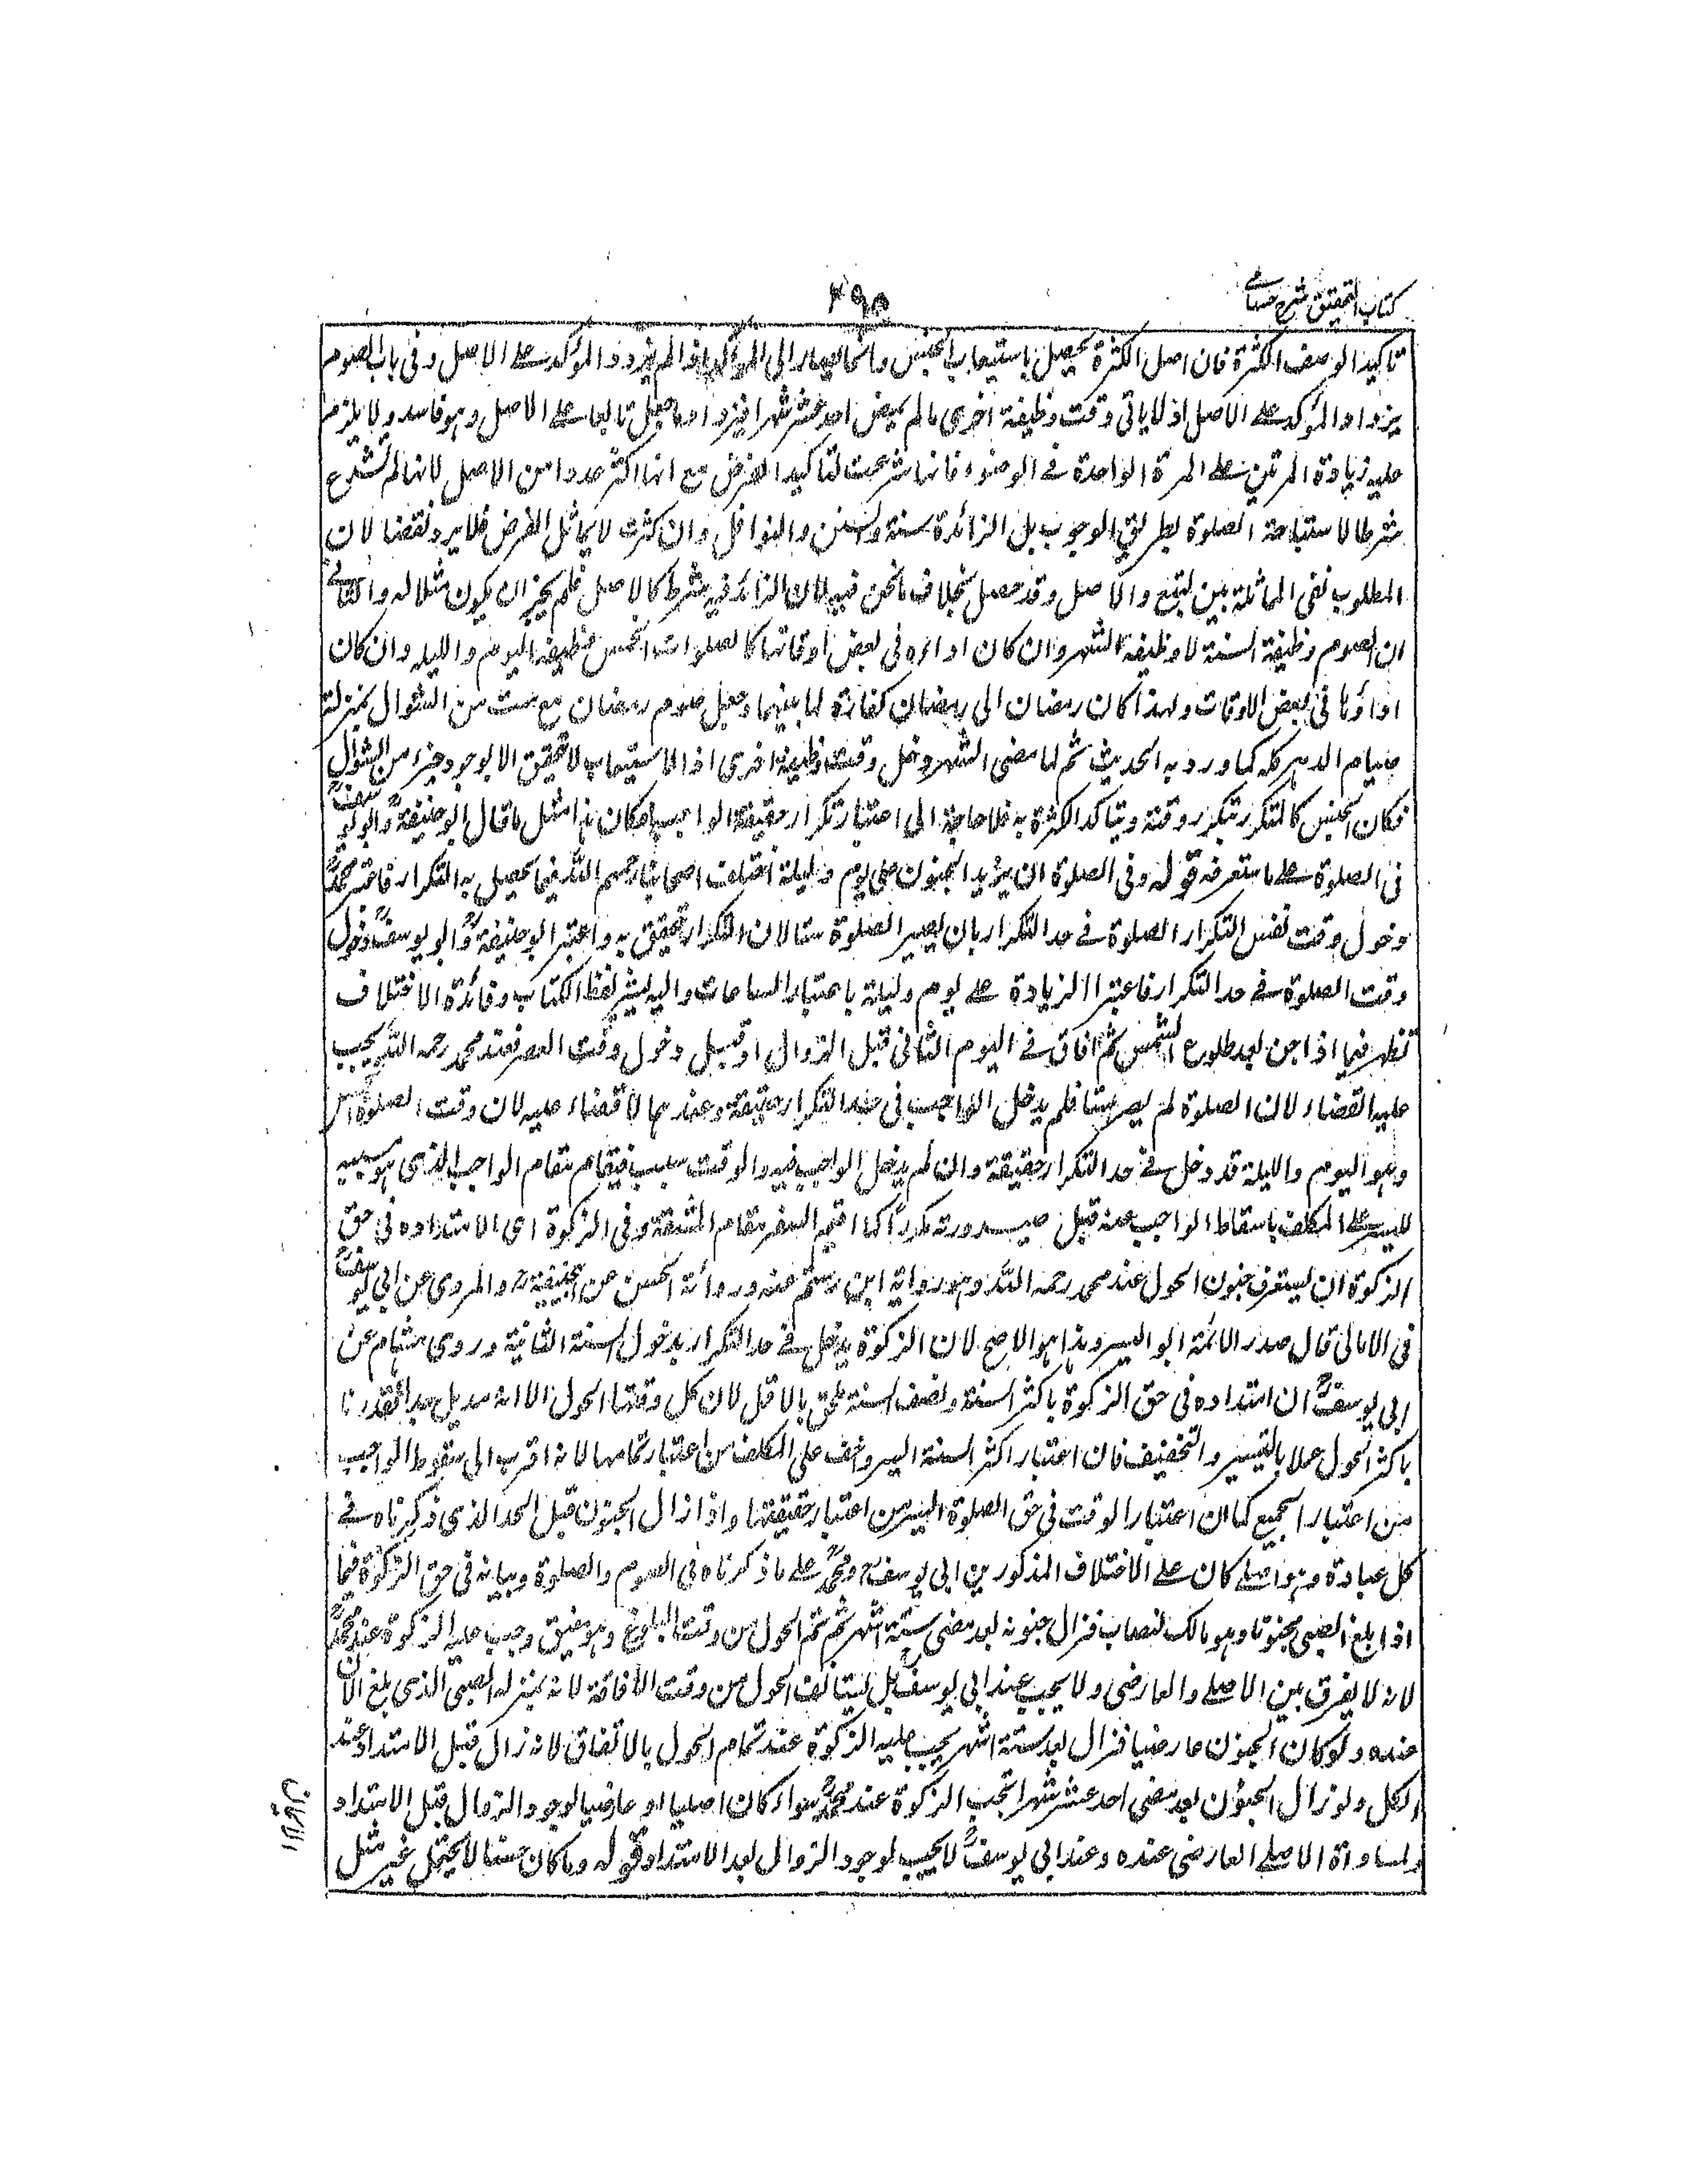 كتاب التحقيق شرح حسامي
۲۹۵
تاكيد الوصف الكثرة فان اصل الكثرة يحصل باستيعاب الجنس وانما يصار الى المؤكد اذا لم يزدد المؤكد على الاصل وفى باب الصوم
يزداد المؤكد على الاصل اذ لا ياتى وقت وظيفة اخرى ما لم يمض احد عشر شهرا فيزداد ما جعل تابعا على الاصل وهو فاسد ولا يلزم
عليه زيادة المرتين على المرة الواحدة فى الوضوء فانها شرعت لتاكيد الفرض مع انها اكثر عددا من الاصل لانها لم تشرع
شرطا لاستباحة الصلوة بطريق الوجوب بل الزائدة سنة والسنن والنوافل وان كثرت لا يماثل الفرض فلا يرد نقضا لان
المطلوب نفى المماثلة بين التبع والاصل وقد حصل بخلاف ما نحن فيه لان الزائد فيه شرط كالاصل فلم يجز ان يكون مثلا له والثانى
ان الصوم وظيفة السنة لا وظيفة الشهر وان كان اداؤه فى بعض اوقاتها كالصلوات الخمس وظيفة اليوم والليله وان كان
اداؤها فى بعض الاوقات ولهذا كان رمضان الى رمضان كفارة لما بينهما وجعل صوم رمضان مع ست من الشوال بمنزلة
صيام الدهر كله كما ورد به الحديث ثم لما مضى الشهر دخل وقت وظيفة اخرى اذ الاستيعاب لا تحقق الا بوجود جزء من الشوال
فكان الجنس كالمتكرر بتكرر وقته ويتاكد الكثرة به فلا حاجة الى اعتبار تكرار حقيقة الواجب فكان هذا مثل ما قال ابو حنيفةؒ وابو يوسفؒ
فى الصلوة على ما ستعرفه قوله وفى الصلوة ان يزيد الجنون على يوم وليلة اختلف اصحابنا رحمهم اللّٰه فيما يحصل به التكرار فاعتبر محمدؒ
دخول وقت نفس التكرار الصلوة فى حد التكرار بان يصير الصلوة ستا لان التكرار تحقق به واعتبر ابو حنيفةؒ وابو يوسفؒ دخول
وقت الصلوة فى حد التكرار فاعتبرا الزيادة على يوم وليلة باعتبار الساعات واليه يشير لفظ الكتاب وفائدة الاختلاف
تظهر فيما اذا جن بعد طلوع الشمس ثم افاق فى اليوم الثانى قبل الزوال او قبيل دخول وقت العصر فعند محمد رحمه اللّٰه يجب
عليه القضاء لان الصلوة لم يصر ستا فلم يدخل الواجب فى حد التكرار حقيقة وعندهما لا قضاء عليه لان وقت الصلوة الخمس
وهو اليوم والليلة قد دخل فى حد التكرار حقيقة وان لم يدخل الواجب فيه والوقت سبب فيقام مقام الواجب الذى هو سببه
لليسر على المكلف باسقاط الواجب عنه قبل صيرورته مكررا كما اقيم السفر مقام المشقة وفى الزكوة اى الامتداده فى حق
الزكوة ان يستغرق جنون الحول عند محمد رحمه اللّٰه وهو رواية ابن رستم عنه ورواية الحسن عن ابيحنيفةؒ والمروى عن ابى يوسفؒ
فى الامالى قال صدر الائمة ابو اليسر وهذا هو الاصح لان الزكوة يدخل فى حد التكرار بدخول السنة الثانية وروى هشام عن
ابى يوسفؒ ان امتداده فى حق الزكوة باكثر السنة ونصف السنة ملحق بالاقل لان كل وقتها الحول الا انه مديد جدا فقدرنا
باكثر الحول عملا بالتيسير والتخفيف فان اعتبار اكثر السنة اليسر واخف على المكلف من اعتبار تمامها لانه اقرب الى سقوط الواجب
من اعتبار الجميع كما ان اعتبار الوقت فى حق الصلوة اليسر من اعتبار حقيقتها واذا زال الجنون قبل الحد الذى ذكرناه فى
كل عبادة وهو اصلى كان على الاختلاف المذكور بين ابى يوسفؒ ومحمدؒ على ما ذكرناه فى الصوم والصلوة وبيانه فى حق الزكوة فيما
اذا بلغ الصبى مجنونا وهو مالك لنصاب فزال جنونه بعد مضى ستة اشهر ثم تم الحول من وقت البلوغ وهو مفيق وجب عليه الزكوة عند محمدؒ
لانه لا يفرق بين الاصلى والعارضى ولا يجب عند ابى يوسفؒ بل يستانف الحول من وقت الافاقة لانه بمنزلة الصبى الذى بلغ الان
عنده ولو كان الجنون عارضيا فزال بعد ستة اشهر يجب عليه الزكوة عند تمام الحول بالاتفاق لانه زال قبل الامتداد عند
الكل ولو زال الجنون بعد مضى احد عشر شهرا تجب الزكوة عند محمدؒ سواء كان اصليا او عارضيا لوجود الزوال قبل الامتداد
ولمساواة الاصلى العارضى عنده وعند ابى يوسفؒ لا يجب لوجود الزوال بعد الامتداد قوله وما كان حسنا لا يحتمل غير مثل
الايمان